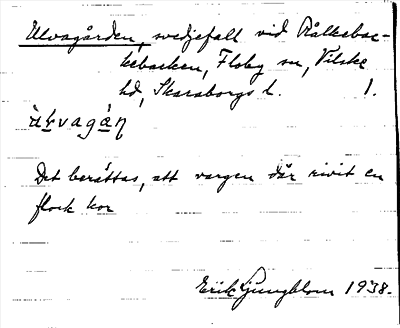 Ulvagården, svedjefall vid Rålkebac-
kebacken, Floby sn, Vilske
hd, Skaraborgs l. 1.
ùłvagà̱ṉ
Det berättas, att vargen där rivit en
flock kor
Erik Ljungblom 1938.